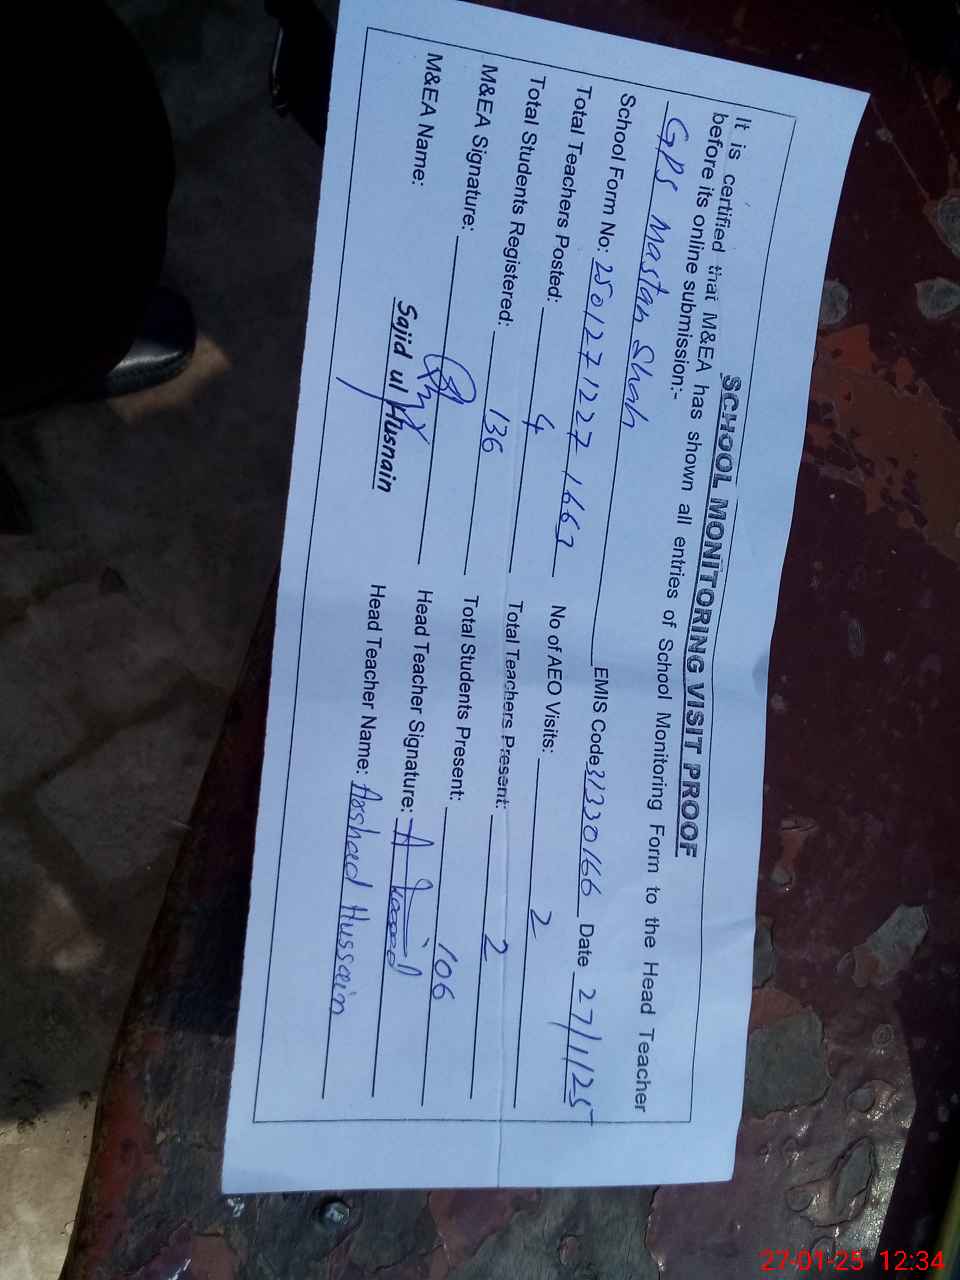 SCHOOL MONITORING VISIT PROOF
It is certified that M&EA has shown all entries of School Monitoring Form to the Head Teacher
before its online submission:-
GPS Mastan Shah EMIS Code 31330166 Date 27/1/25
School Form No: 250127 1227 1663 No of AEO Visits: 2
Total Teachers Posted: 4 Total Teachers Present: 2
Total Students Registered: 136 Total Students Present: 106
M&EA Signature: Head Teacher Signature:
M&EA Name: Sajid ul Husnain Head Teacher Name: Arshad Hussain
27-01-25 12:34